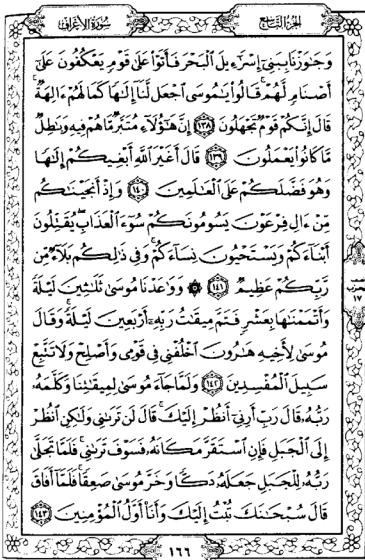 سورة الأعراف
الجزء التاسع
وَجَٰوَزْنَا بِبَنِىٓ إِسْرَٰٓءِيلَ ٱلْبَحْرَ فَأَتَوْا۟ عَلَىٰ قَوْمٍ يَعْكُفُونَ عَلَىٰٓ
أَصْنَامٍ لَّهُمْ ۚ قَالُوا۟ يَٰمُوسَى ٱجْعَل لَّنَآ إِلَٰهًا كَمَا لَهُمْ ءَالِهَةٌ ۚ
قَالَ إِنَّكُمْ قَوْمٌ تَجْهَلُونَ ١٣٨ إِنَّ هَٰٓؤُلَآءِ مُتَبَّرٌ مَّا هُمْ فِيهِ وَبَٰطِلٌ
مَّا كَانُوا۟ يَعْمَلُونَ ١٣٩ قَالَ أَغَيْرَ ٱللَّهِ أَبْغِيكُمْ إِلَٰهًا
وَهُوَ فَضَّلَكُمْ عَلَى ٱلْعَٰلَمِينَ ١٤٠ وَإِذْ أَنجَيْنَٰكُم
مِّنْ ءَالِ فِرْعَوْنَ يَسُومُونَكُمْ سُوٓءَ ٱلْعَذَابِ ۖ يُقَتِّلُونَ
أَبْنَآءَكُمْ وَيَسْتَحْيُونَ نِسَآءَكُمْ ۚ وَفِى ذَٰلِكُم بَلَآءٌ مِّن
رَّبِّكُمْ عَظِيمٌ ١٤١ ۞ وَوَٰعَدْنَا مُوسَىٰ ثَلَٰثِينَ لَيْلَةً
وَأَتْمَمْنَٰهَا بِعَشْرٍ فَتَمَّ مِيقَٰتُ رَبِّهِۦٓ أَرْبَعِينَ لَيْلَةً ۚ وَقَالَ
مُوسَىٰ لِأَخِيهِ هَٰرُونَ ٱخْلُفْنِى فِى قَوْمِى وَأَصْلِحْ وَلَا تَتَّبِعْ
سَبِيلَ ٱلْمُفْسِدِينَ ١٤٢ وَلَمَّا جَآءَ مُوسَىٰ لِمِيقَٰتِنَا وَكَلَّمَهُۥ
رَبُّهُۥ قَالَ رَبِّ أَرِنِىٓ أَنظُرْ إِلَيْكَ ۚ قَالَ لَن تَرَىٰنِى وَلَٰكِنِ ٱنظُرْ
إِلَى ٱلْجَبَلِ فَإِنِ ٱسْتَقَرَّ مَكَانَهُۥ فَسَوْفَ تَرَىٰنِى ۚ فَلَمَّا تَجَلَّىٰ
رَبُّهُۥ لِلْجَبَلِ جَعَلَهُۥ دَكًّا وَخَرَّ مُوسَىٰ صَعِقًا ۚ فَلَمَّآ أَفَاقَ
قَالَ سُبْحَٰنَكَ تُبْتُ إِلَيْكَ وَأَنَا۠ أَوَّلُ ٱلْمُؤْمِنِينَ ١٤٣
١٧
١٦٦